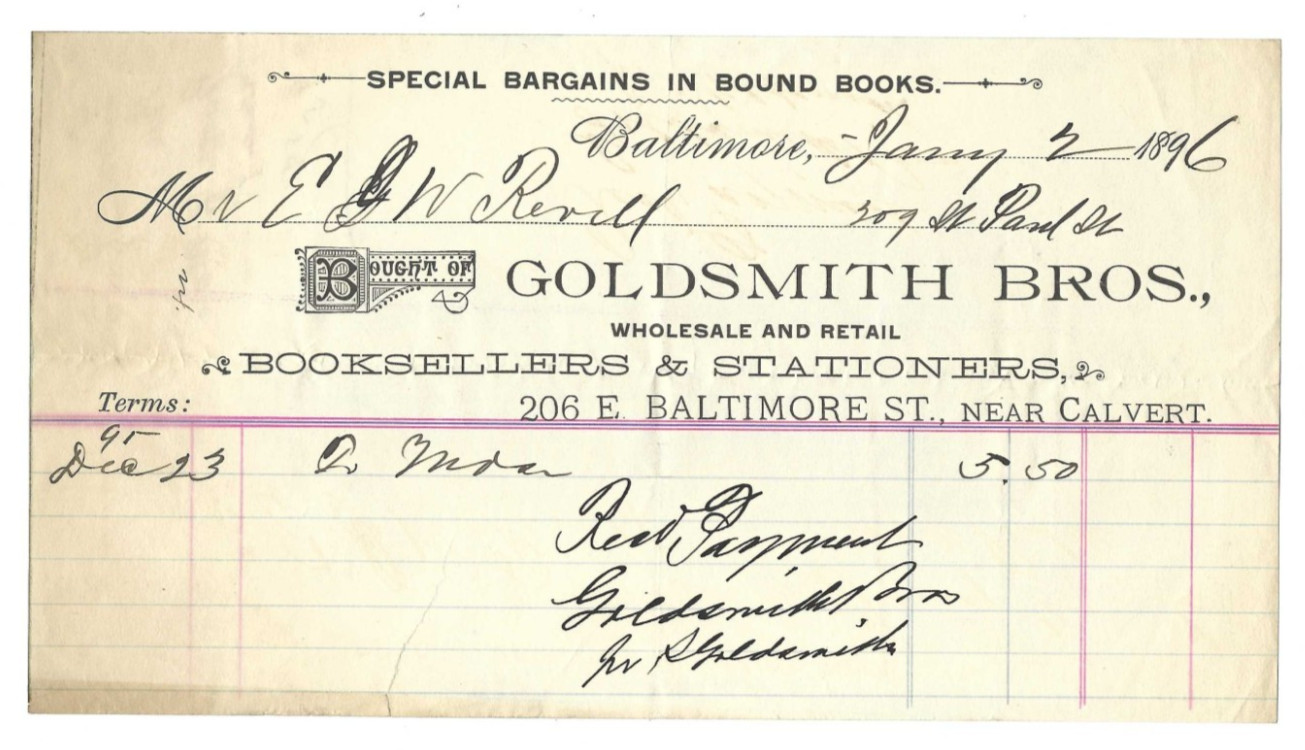 SPECIAL BARGAINS IN BOUND BOOKS.
Baltimore, Jany 2 1896
Mr E G W Revell 309 St Paul St
BOUGHT OF GOLDSMITH BROS.,
WHOLESALE AND RETAIL
BOOKSELLERS & STATIONERS,
Terms: 206 E. BALTIMORE ST., NEAR CALVERT.
95
Dec 23 5.50
Recd Payment
Goldsmith Bros
pr S Goldsmith